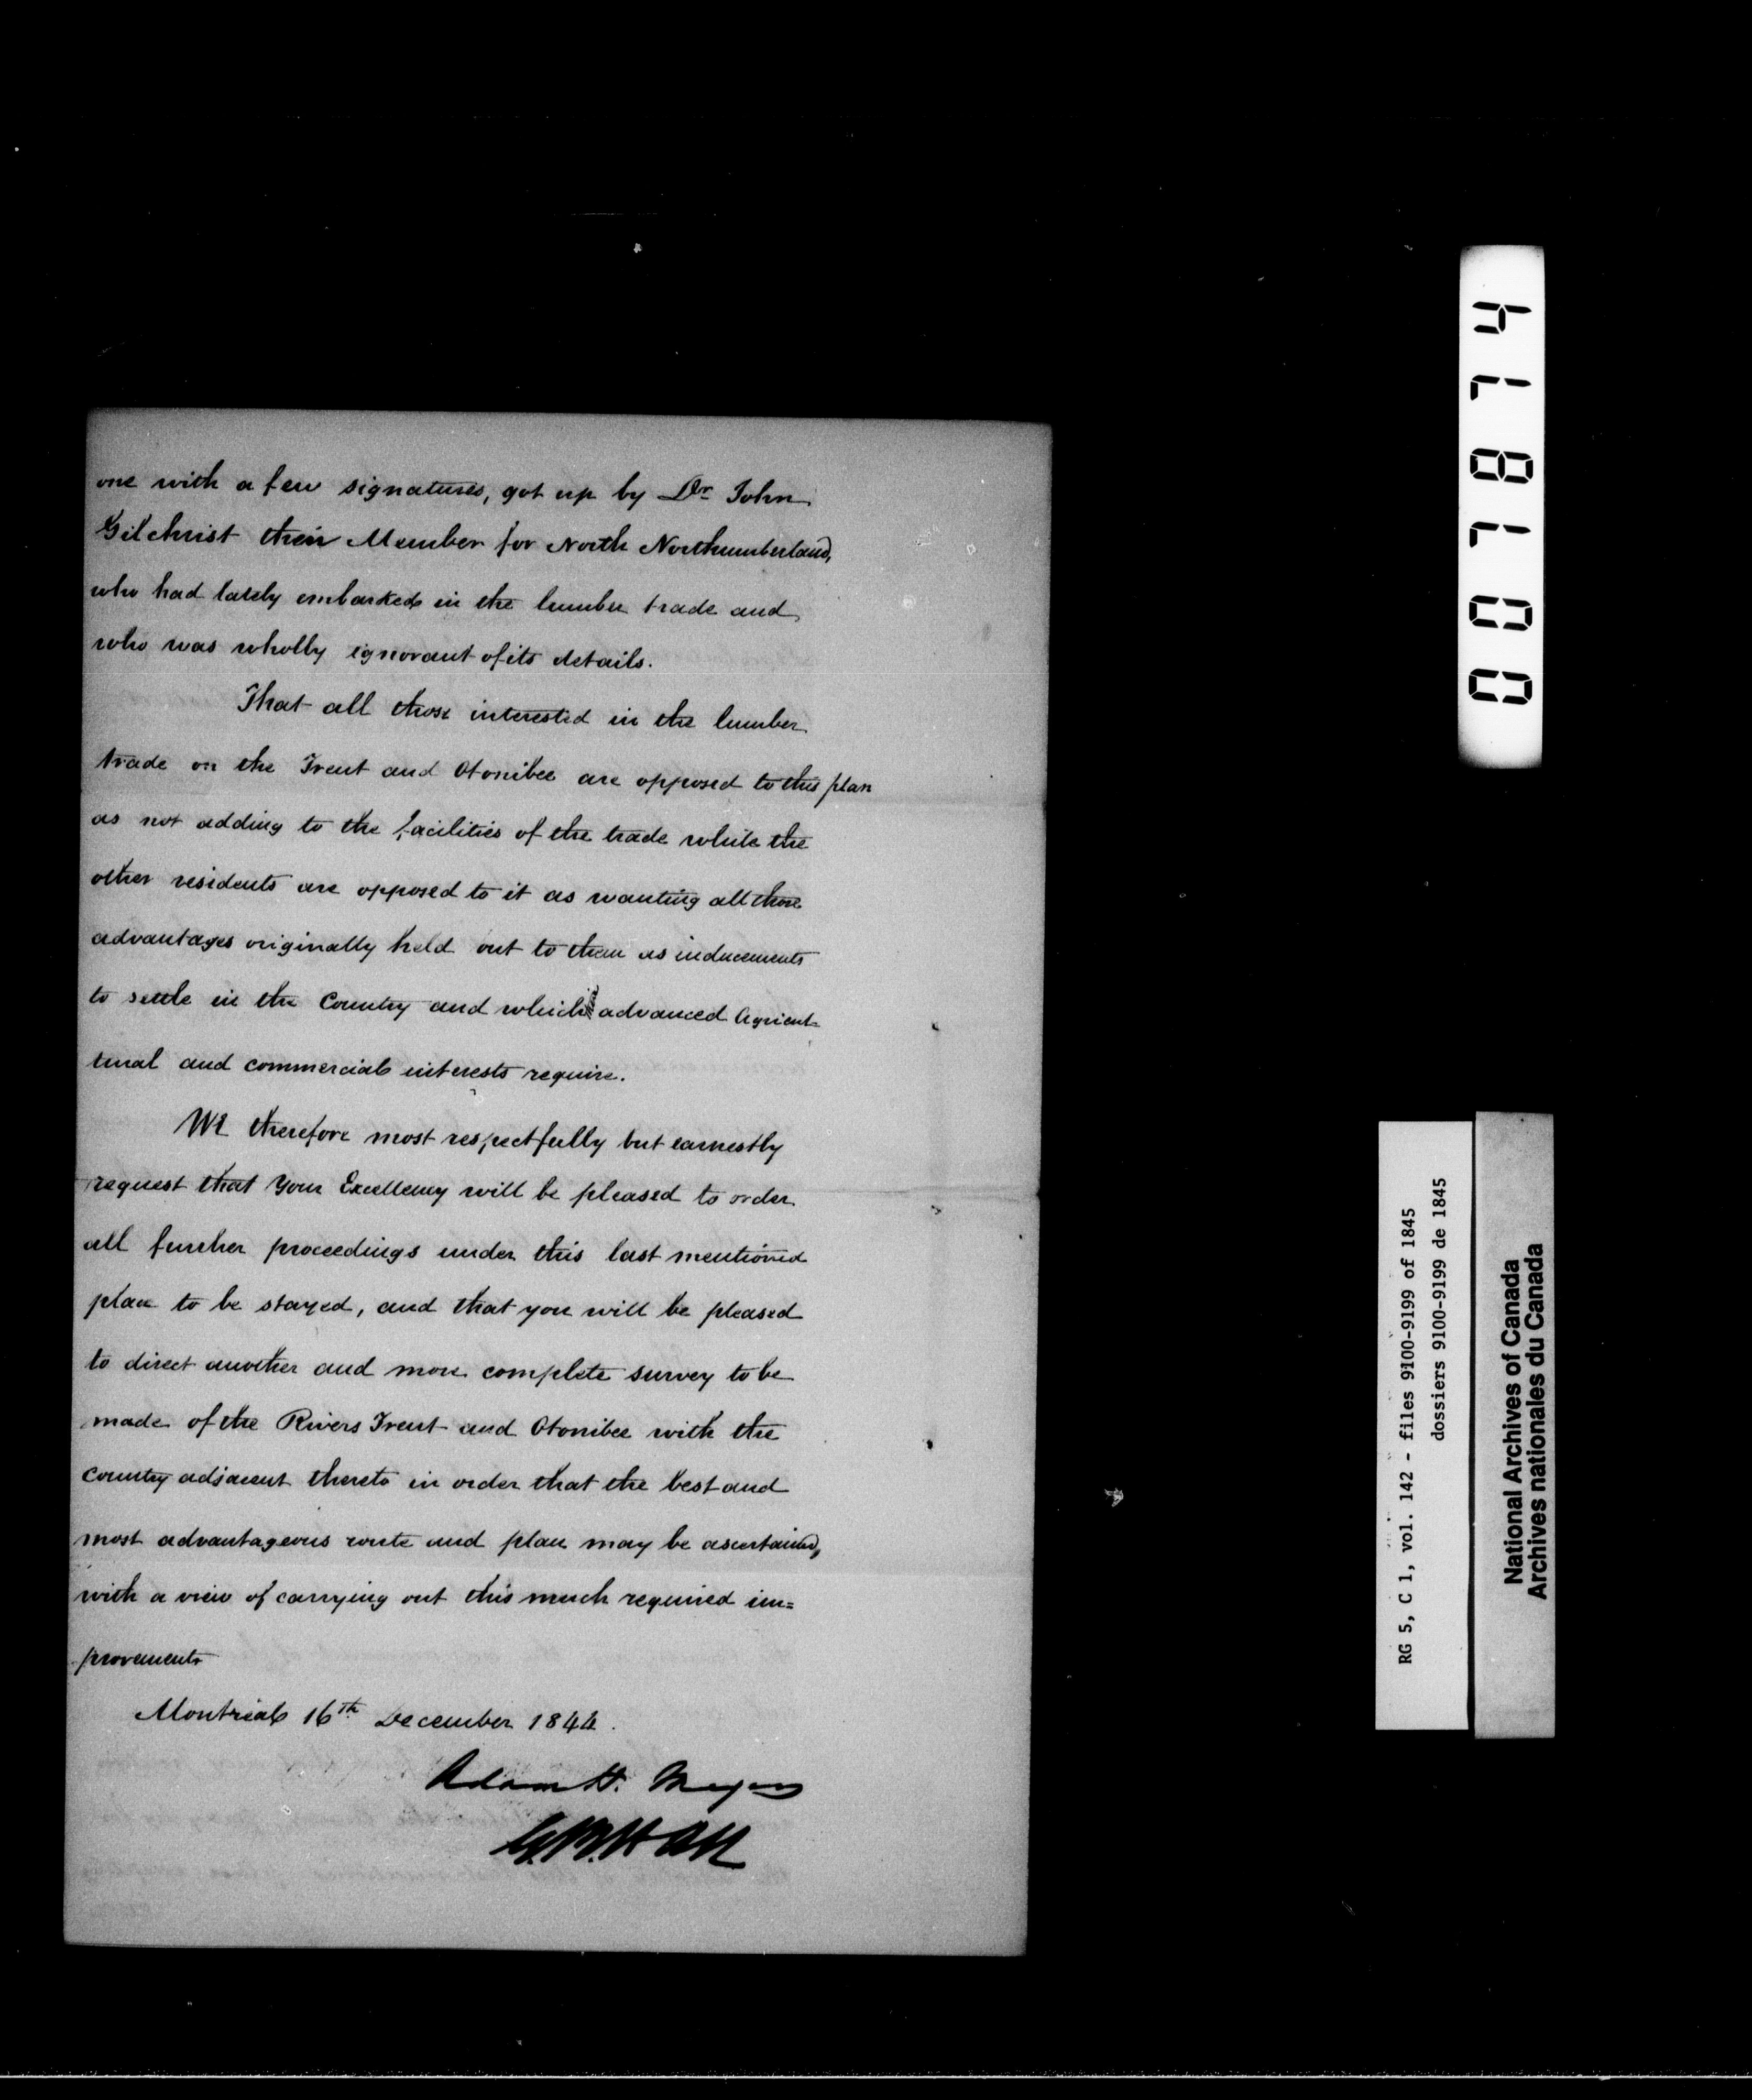 one with a few signatures, got up by Dr John
Gilchrist their Member for North Northumberland,
who had lately embarked in the lumber trade and
who was wholly ignorant of its details.
That all those interested in the lumber
trade on the Trent and Otonibee are opposed to this plan
as not adding to the facilities of the trade while the
other residents are opposed to it as wanting all those
advantages originally held out to them as inducements
to settle in the Country and which advanced Agricul-
tural and commercial interests require.
We therefore most respectfully but earnestly
request that Your Excellency will be pleased to order
all further proceedings under this last mentioned
plan to be stayed, and that you will be pleased
to direct another and more complete survey to be
made of the Rivers Trent and Otonibee with the
Country adjacent thereto in order that the best and
most advantageous route and plan may be ascertained,
with a view of carrying out this much required im=
provement
Montreal 16th December 1844.
Adam H. Meyers
G. B. Hall
001874
RG 5, C 1, vol. 142 - files 9100-9199 of 1845
dossiers 9100-9199 de 1845
National Archives of Canada
Archives nationales du Canada